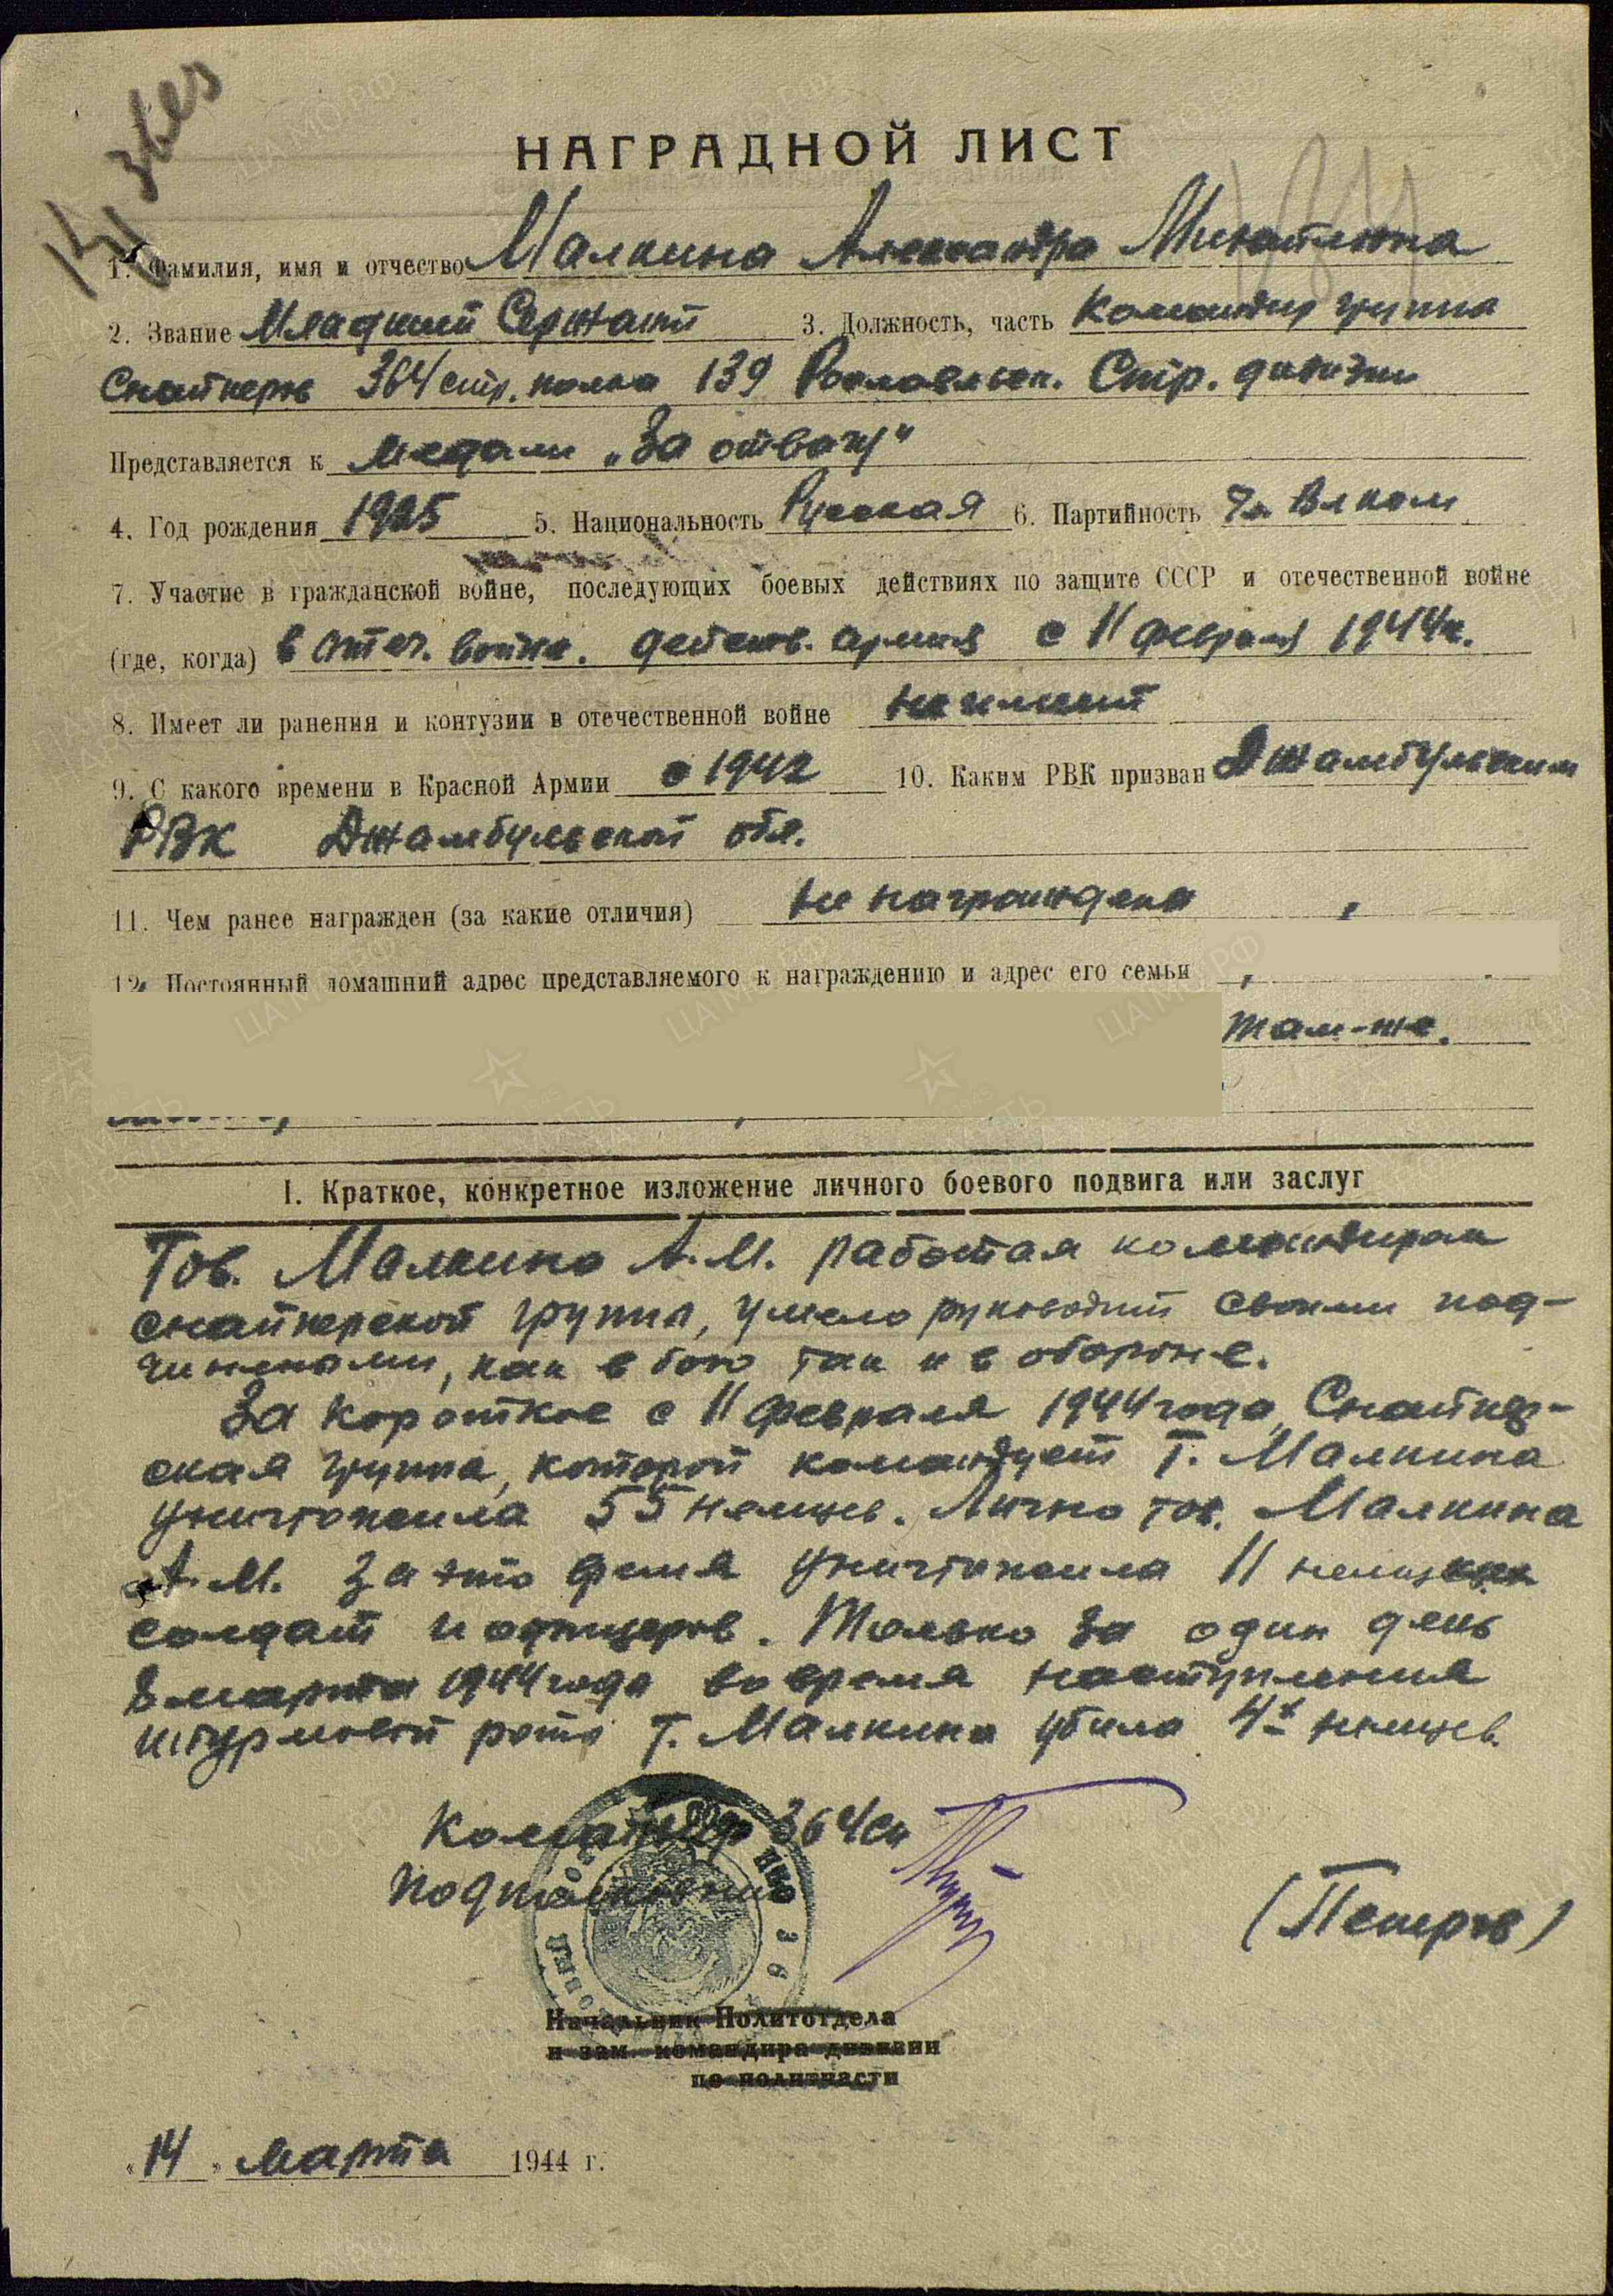 НАГРАДНОЙ ЛИСТ
1. Фамилия, имя и отчество Малкина Александра Михайловна
2. Звание Младший Сержант 3. Должность, часть Командир группы
Снайперов 364 стр. полка 139 Рославльск. Стр. дивизии
Представляется к медали „За отвагу"
4. Год рождения 1925 5. Национальность Русская 6. Партийность Чл. Влксм
7. Участие в гражданской войне, последующих боевых действиях по защите СССР и отечественной войне
(где, когда) в отеч. войне. действ. армия с 11 февраля 1944г.
8. Имеет ли ранения и контузии в отечественной войне не имеет
9. С какого времени в Красной Армии с 1942 10. Каким РВК призван Джамбульским
РВК Джамбульской обл.
11. Чем ранее награжден (за какие отличия) не награждена
12. Постоянный домашний адрес представляемого к награждению и адрес его семьи
там-же.
I. Краткое, конкретное изложение личного боевого подвига или заслуг
Тов. Малкина А.М. работая командиром
снайперской группы, умело руководит своими под-
чиненами, как в бою так и в обороне.
За короткое с 11 февраля 1944 года, Снайпер-
ская группа, которой командует Т. Малкина
уничтожила 55 немцев. Лично тов. Малкина
А.М. за это время уничтожила 11 немецких
солдат и офицеров. Только за один день
8 марта 1944 года во время наступления
штурмовой роты Т. Малкина убила 4х немцев.
Командир 364 сп
подполковник
(Петров)
Начальник Политотдела
и зам. командира дивизии
по политчасти
„14" марта 1944 г.